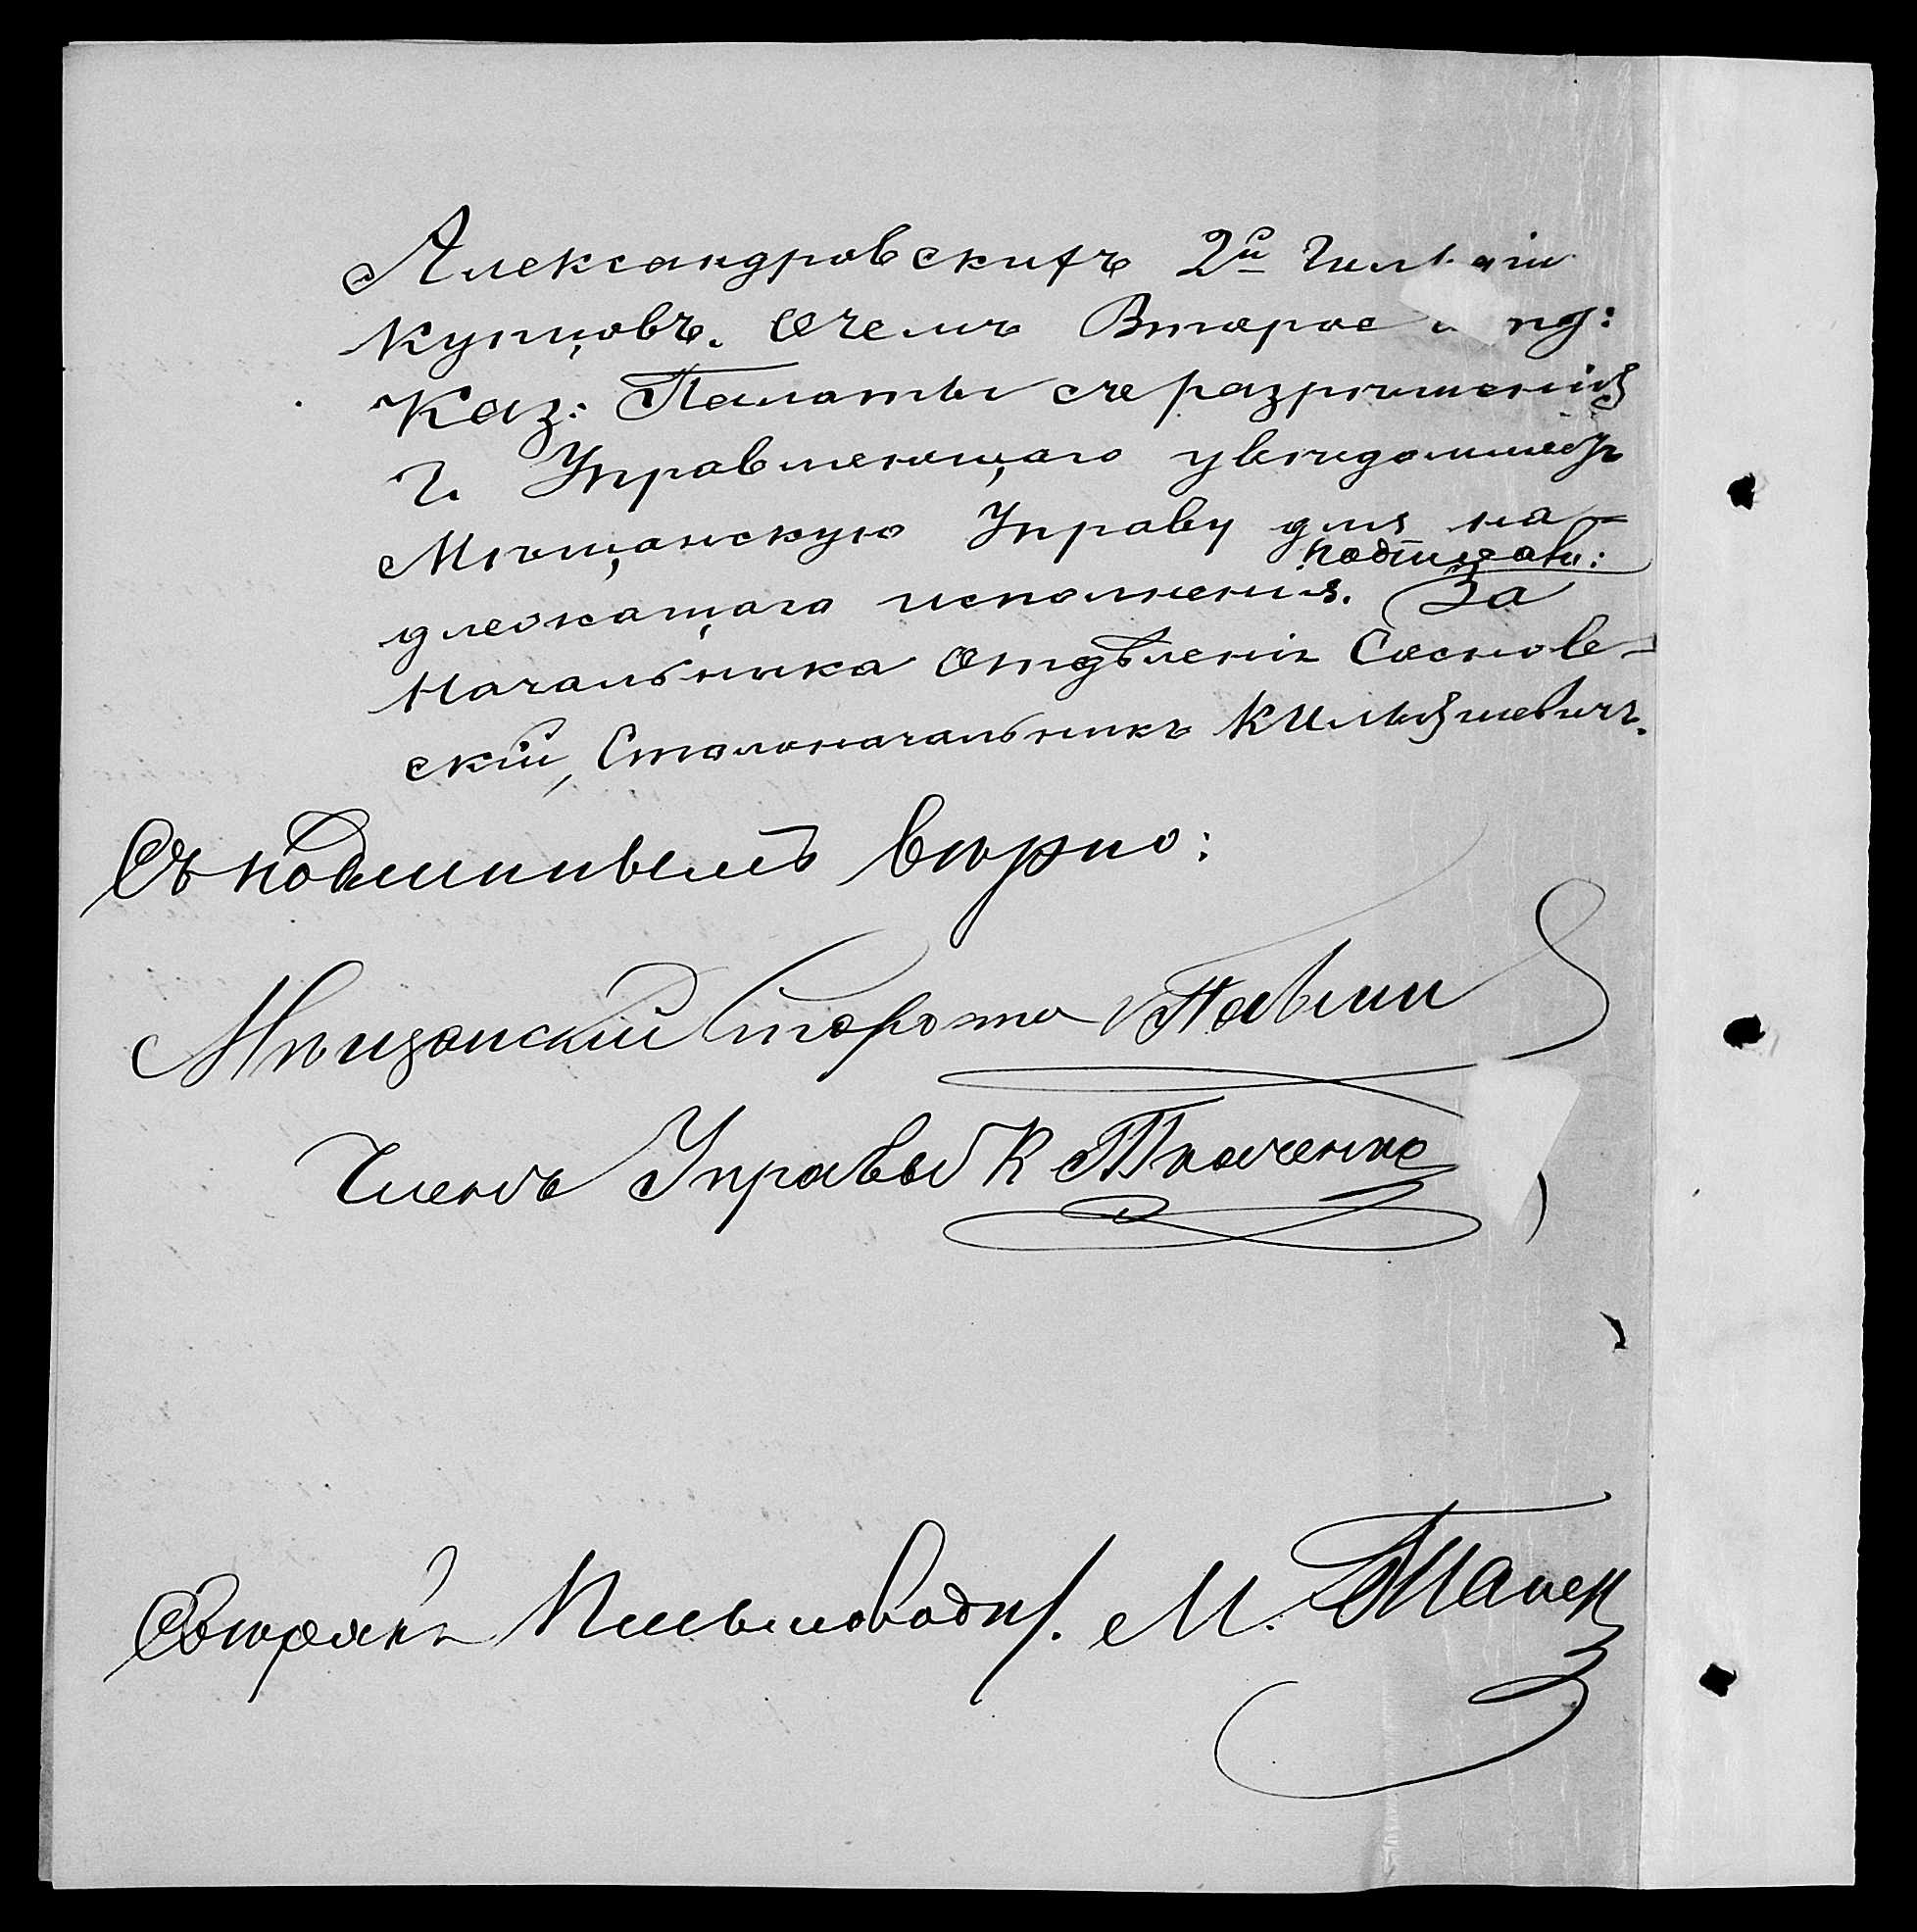 Александровскихъ 2й Гильдіи
купцовъ. О чемъ Второе
Каз: Палаты съ разрѣшенія
Г. Управляющаго увѣдомляетъ
Мѣщанскую Управу для на-
длежащаго исполненія. За подписаю:
Начальника Отдѣленія Соснов-
скій, Столоначальникъ
Съ подлиннымъ вѣрно:
Мѣщанскій Староста Павлин
Членъ Управы К Ткаченко
Свѣрялъ Письмовод. М.